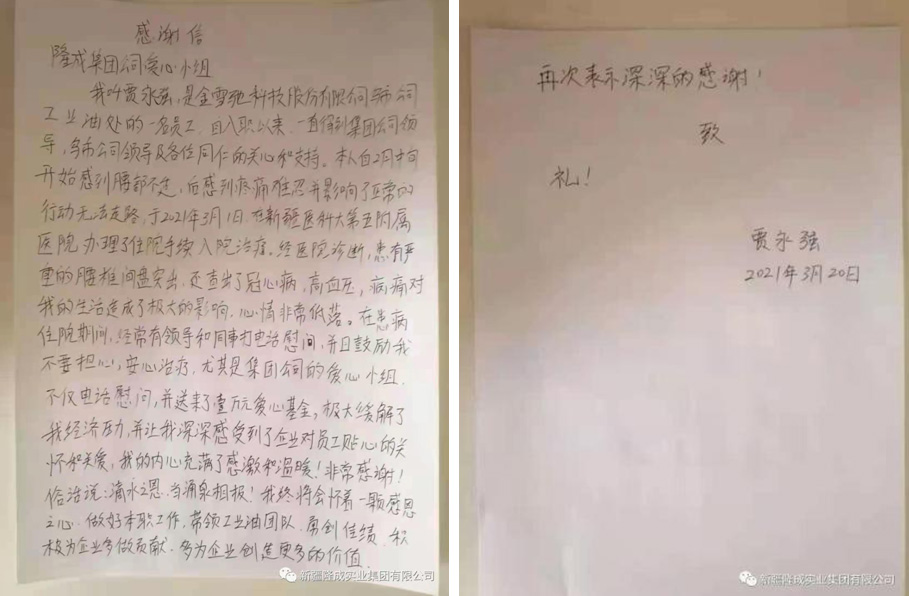 感谢信
隆成集团公司爱心小组
我叫贾永强,是金雪驰科技股份有限公司乌市公司
工业油处的一名员工,自入职以来,一直得到集团公司领
导,乌市公司领导及各位同仁的关心和支持。本人自2月中旬
开始感到腰部不适,后感到疼痛难忍并影响了正常的
行动无法走路,于2021年3月1日,在新疆医科大第五附属
医院,办理了住院手续入院治疗。经医院诊断,患有严
重的腰椎间盘突出,还查出了冠心病,高血压,病痛对
我的生活造成了极大的影响,心情非常低落。在患病
住院期间,经常有领导和同事打电话慰问,并且鼓励我
不要担心,安心治疗,尤其是集团公司的爱心小组,
不仅电话慰问,并送来了壹万元爱心基金,极大缓解了
我经济压力,并让我深深感受到了企业对员工贴心的关
怀和关爱,我的内心充满了感激和温暖!非常感谢!
俗话说:滴水之恩,当涌泉相报!我终将会怀着一颗感恩
之心,做好本职工作,带领工业油团队,勇创佳绩,积
极为企业多做贡献,多为企业创造更多的价值.
新疆隆成实业集团有限公司
再次表示深深的感谢!
致
礼!
贾永强
2021年3月20日
新疆隆成实业集团有限公司